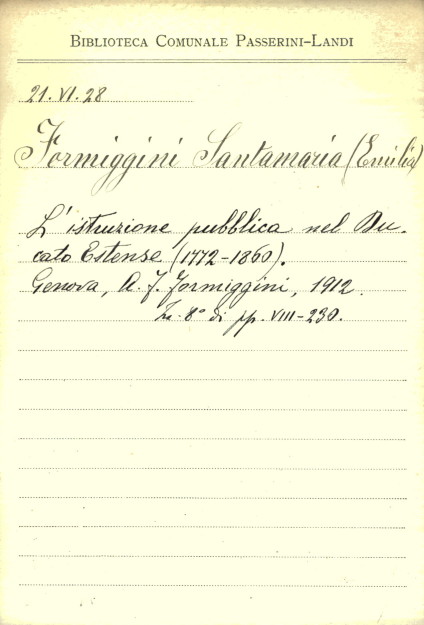 BIBLIOTECA COMUNALE PASSERINI-LANDI
21.VI.28
Formiggini Santamaria (Emilia)
L'istruzione pubblica nel Du-
cato Estense (1772-1860).
Genova, A. F. Formiggini, 1912.
In-8° di pp. VIII-230.